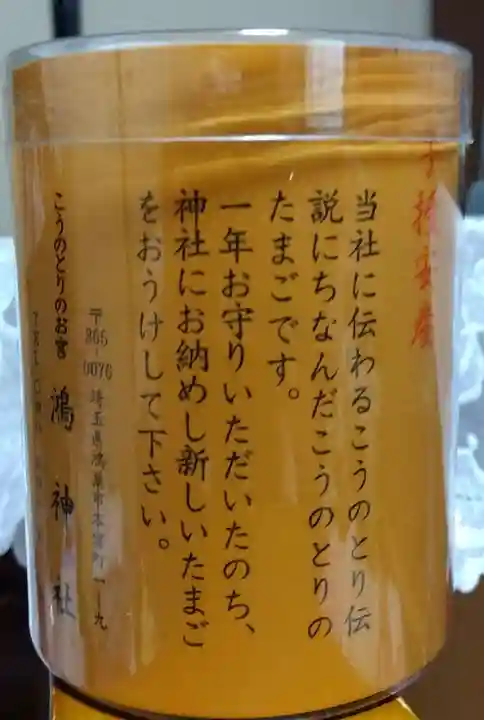 子授安産
当社に伝わるこうのとり伝
説にちなんだこうのとりの
たまごです。
一年お守りいただいたのち、
神社にお納めし新しいたまご
をおうけして下さい。
〒365-0076 埼玉県鴻巣市本宮町一ー九
こうのとりのお宮 鴻神社